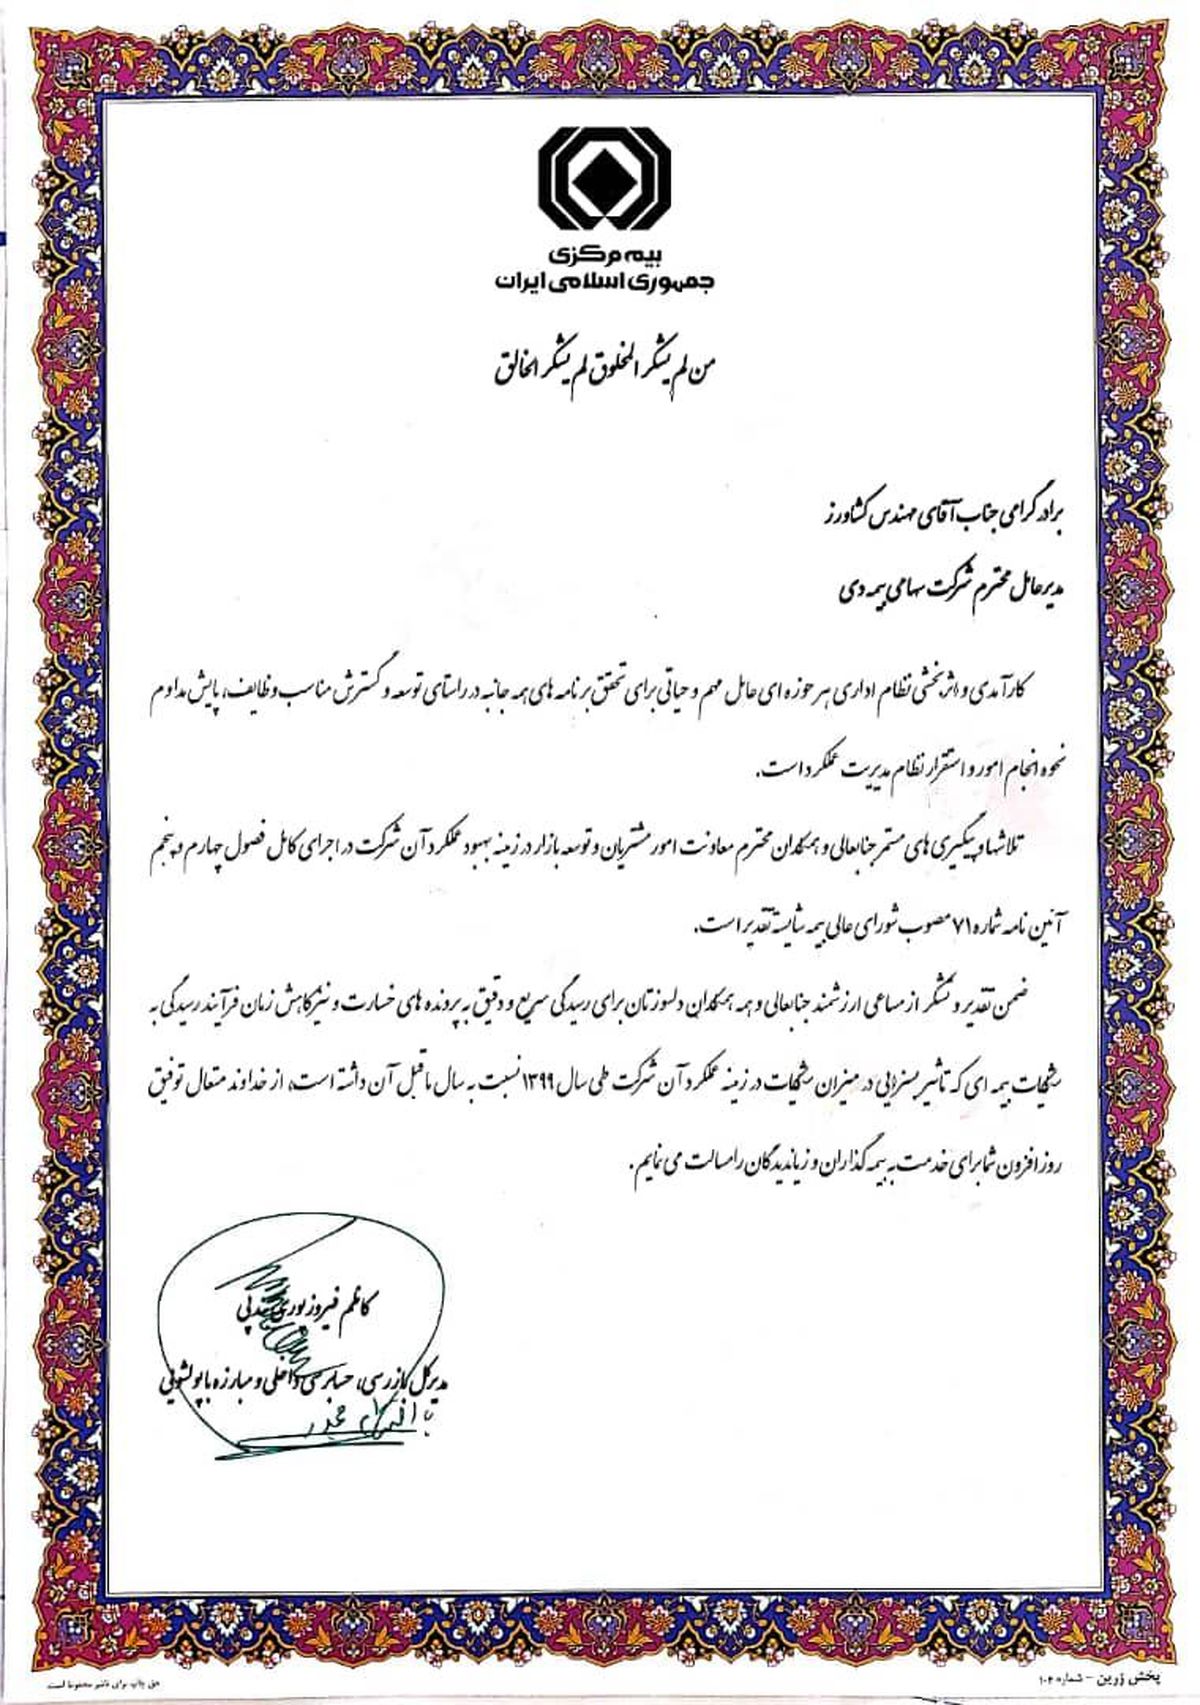 بیمه مرکزی
جمهوری اسلامی ایران
من لم یشکر المخلوق لم یشکر الخالق
برادر گرامی جناب آقای مهندس کشاورز
مدیرعامل محترم شرکت سهامی بیمه دی
کارآمدی و اثربخشی نظام اداری هر حوزه ای عامل مهم و حیاتی برای تحقق برنامه های همه جانبه در راستای توسعه و گسترش مناسب وظایف، پایش مداوم
نحوه انجام امور و استقرار نظام مدیریت عملکرد است.
تلاشها و پیگیری های مستمر جنابعالی و همکاران محترم معاونت امور مشتریان و توسعه بازار در زمینه بهبود عملکرد آن شرکت در اجرای کامل فصول چهارم و پنجم
آئین نامه شماره ۷۱ مصوب شورای عالی بیمه شایسته تقدیر است.
ضمن تقدیر و تشکر از مساعی ارزشمند جنابعالی و همه همکاران دلسوزتان برای رسیدگی سریع و دقیق به پرونده های خسارت و نیز کاهش زمان فرآیند رسیدگی به
شکایات بیمه ای که تاثیر بسزایی در میزان شکایات در زمینه عملکرد آن شرکت طی سال ۱۳۹۹ نسبت به سال ماقبل آن داشته است، از خداوند متعال توفیق
روزافزون شما برای خدمت به بیمه گذاران و زیاندیدگان را مسالت می نمایم.
کاظم فیروز نوری
مدیرکل بازرسی، حسابرسی داخلی و مبارزه با پولشویی
حق چاپ برای ناشر محفوظ است
پخش زرین - شماره ۱۰۴